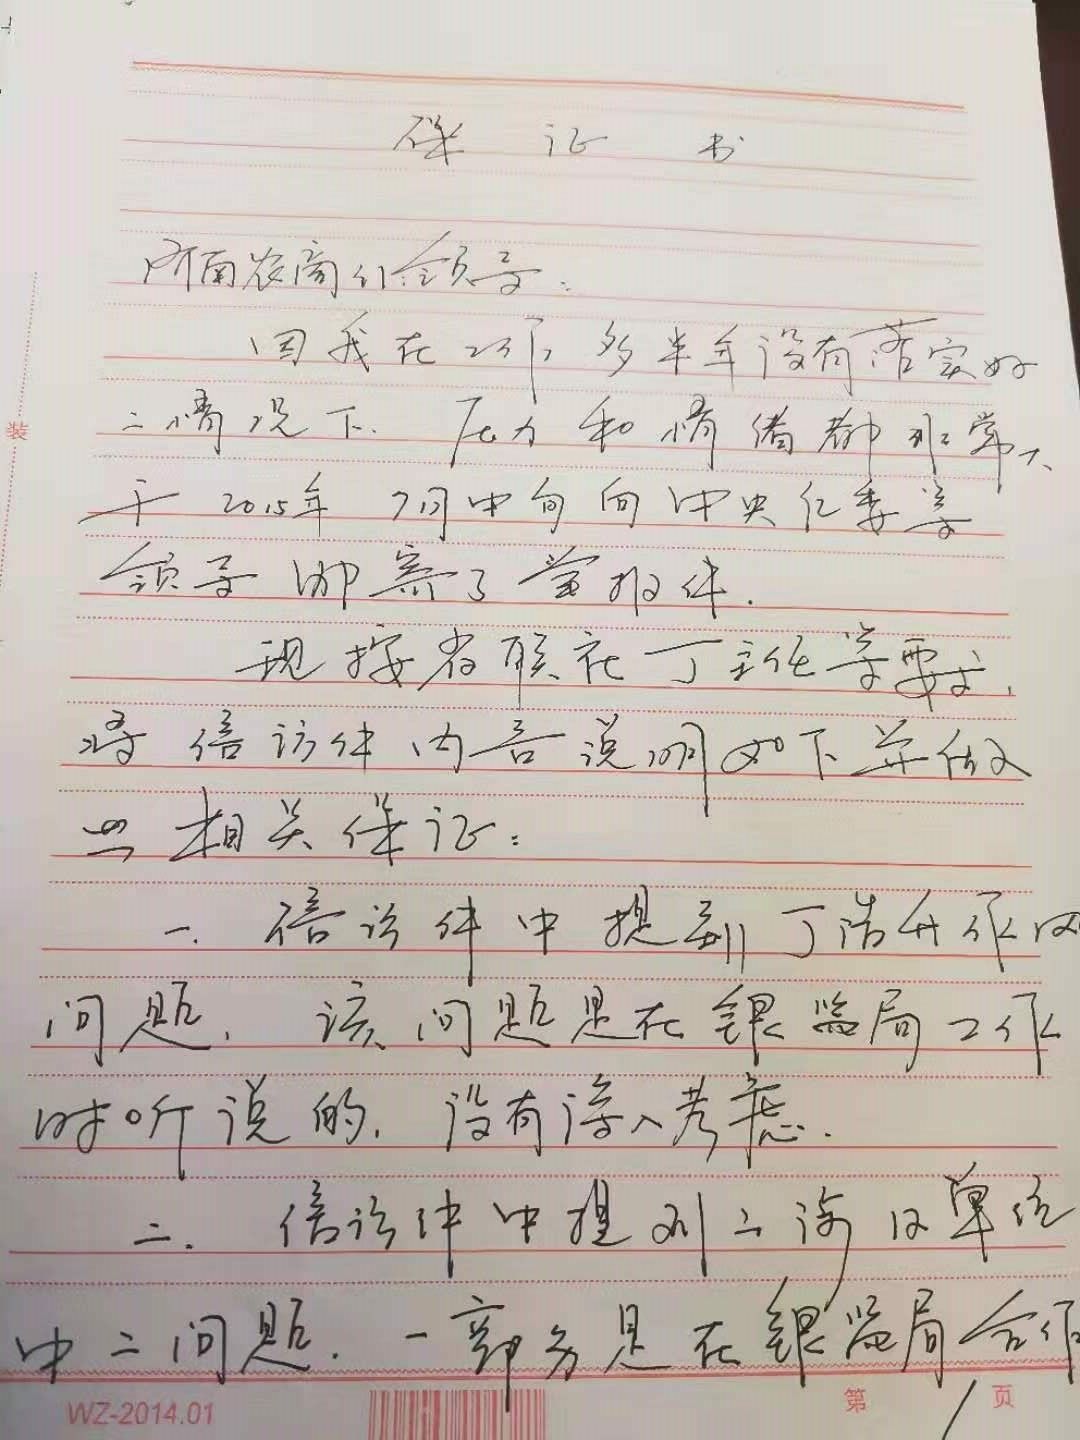 保 证 书
河南农商行领导：
因我在工作多半年没有落实好
之情况下. 压力和情绪都非常大
于 2015年 7月中旬向中央纪委等
领导邮寄了举报件.
现按省联社丁主任等要求,
将信访件内容说明如下并做
出相关保证：
一. 信访件中提到丁浩升作风
问题, 该问题是在银监局工作
时听说的, 没有深入考虑.
二. 信访件中提到
单位
中之问题. 一部分是在银监局工作
装
WZ-2014.01
第 1 页